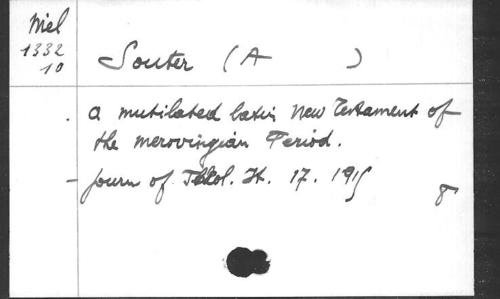 Miel
1332
10
Souter (A )
a mutilated latin New Testament of
the merovingian Period.
- Journ of Theol. St. 17. 1915
8